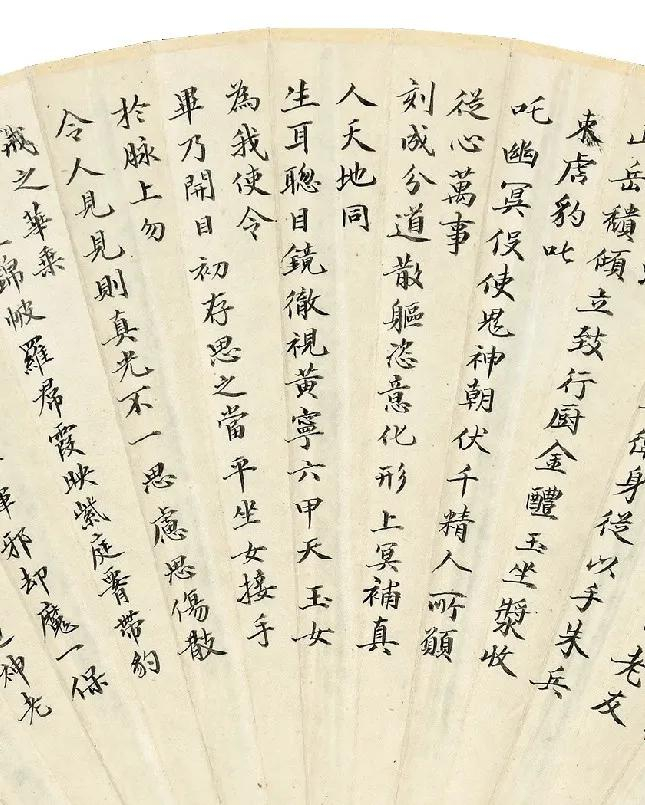 老友
身從以手朱兵
山岳積傾立致行厨金醴玉坐漿收
東虎豹叱
吒幽冥役使鬼神朝伏千精人所願
從心萬事
刻成分道散軀恣意化形上冥補真
人天地同
生耳聰目鏡徹視黃寧六甲天玉女
為我使令
畢乃開目初存思之當平坐女接手
於脉上勿
令人見見則真光不一思慮思傷散
之華乘
錦帔羅帬霞映紫庭腎帶豹
邪却魔一保
神老